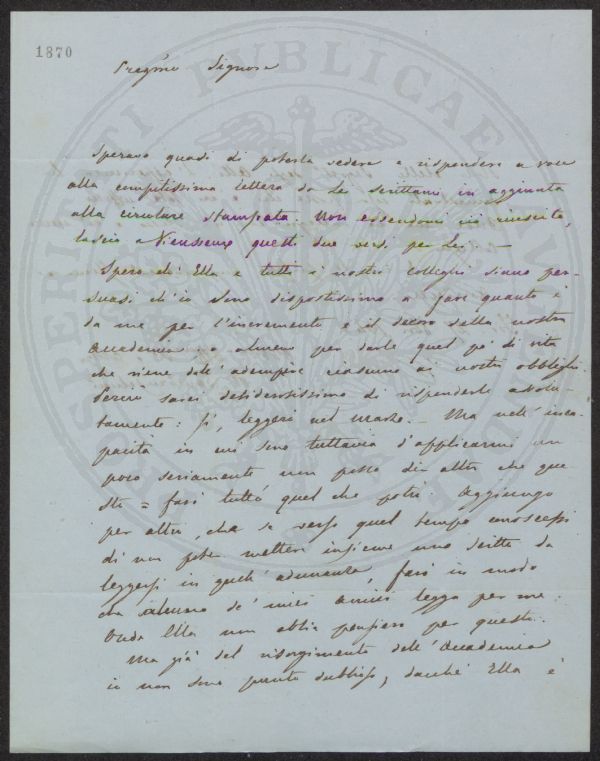 1870
Pregmo Signore
Speravo quasi di poterla vedere e rispendere a voce
alla compitissima lettera da Lei scrittami in aggiunta
alla circolare stampata. Non essendomi ciò riuscito,
lascio a Vieusseux questi due versi per Lei. —
Spero ch'Ella e tutti i nostri colleghi siano per-
suasi ch'io sono dispostissimo a fare quanto è
da me per l'incremento e il decoro della nostra
Accademia o almeno per darle quel po' di vita
che viene dall'adempire ciascuno ai nostri obblighi.
Perciò sarei desiderosissimo di risponderle assolu-
tamente: sì, leggerò nel marzo. — Ma nell'inca-
pacità in cui sono tuttavia d'applicarmi un
poco seriamente non posso dir altro che que-
sto = farò tutto quel che potrò. Aggiungo
per altro, che se verso quel tempo conoscessi
di non poter mettere insieme uno scritto da
leggersi in quell'adunanza, farò in modo
che alcuno de' miei amici legga per me.
Onde Ella non abbia pensiero per questo.
Ma già del risorgimento dell'Accademia
io non sono punto dubbioso, dacchè Ella è
PROSPERITATI PUBLICAE